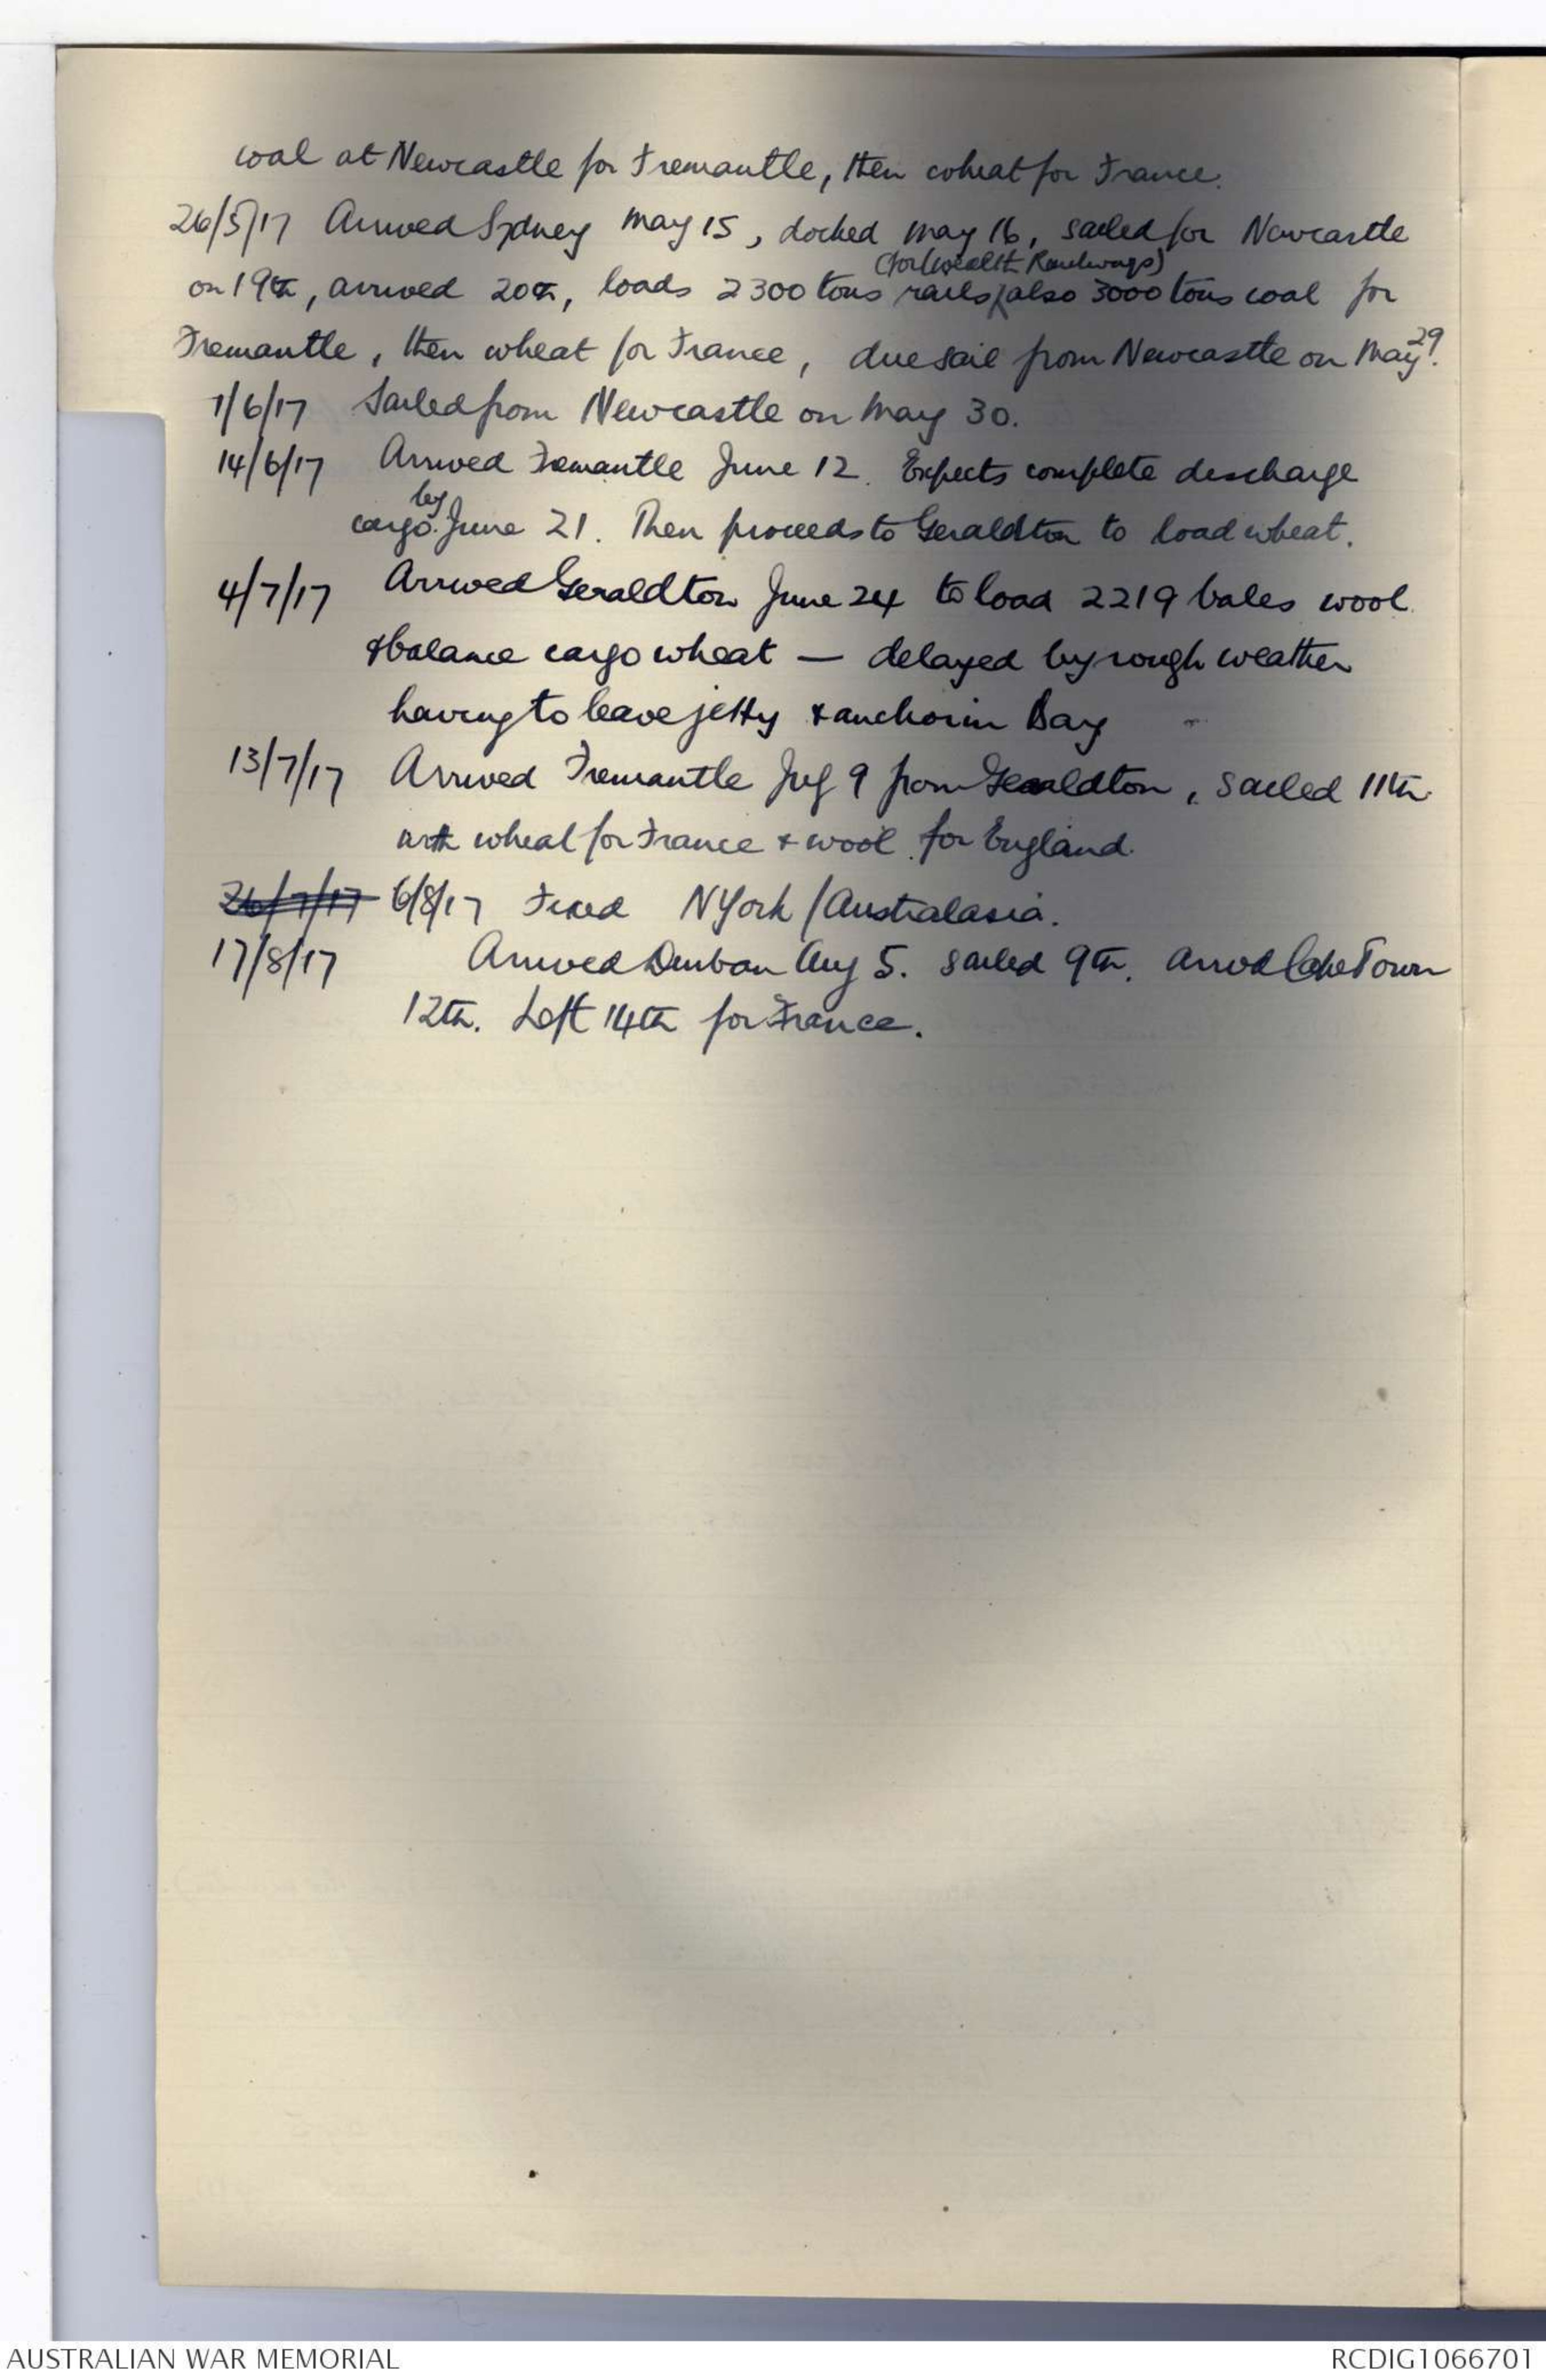 coal at Newcastle for Fremantle, then wheat for France.
26/5/17 Arrived Sydney May 15, docked May 16, sailed for Newcastle
(for C'wealth Railways)
on 19th, arrived 20th, loads 2300 tons rails, also 3000 tons coal for
Fremantle, then wheat for France, due sail from Newcastle on May 29.
1/6/17 Sailed from Newcastle on May 30.
14/6/17 Arrived Fremantle June 12. Expects complete discharge
cargo by June 21. Then proceeds to Geraldton to load wheat.
4/7/17 Arrived Geraldton June 24 to load 2219 bales wool
& balance cargo wheat — delayed by rough weather
having to leave jetty & anchor in Bay
13/7/17 Arrived Fremantle July 9 from Geraldton, sailed 11th
with wheat for France & wool for England.
26/7/17 6/8/17 Fixed NYork/Australasia.
17/8/17 Arrived Durban Aug 5. sailed 9th. arrvd Cape Town
12th. Left 14th for France.
AUSTRALIAN WAR MEMORIAL
RCDIG1066701